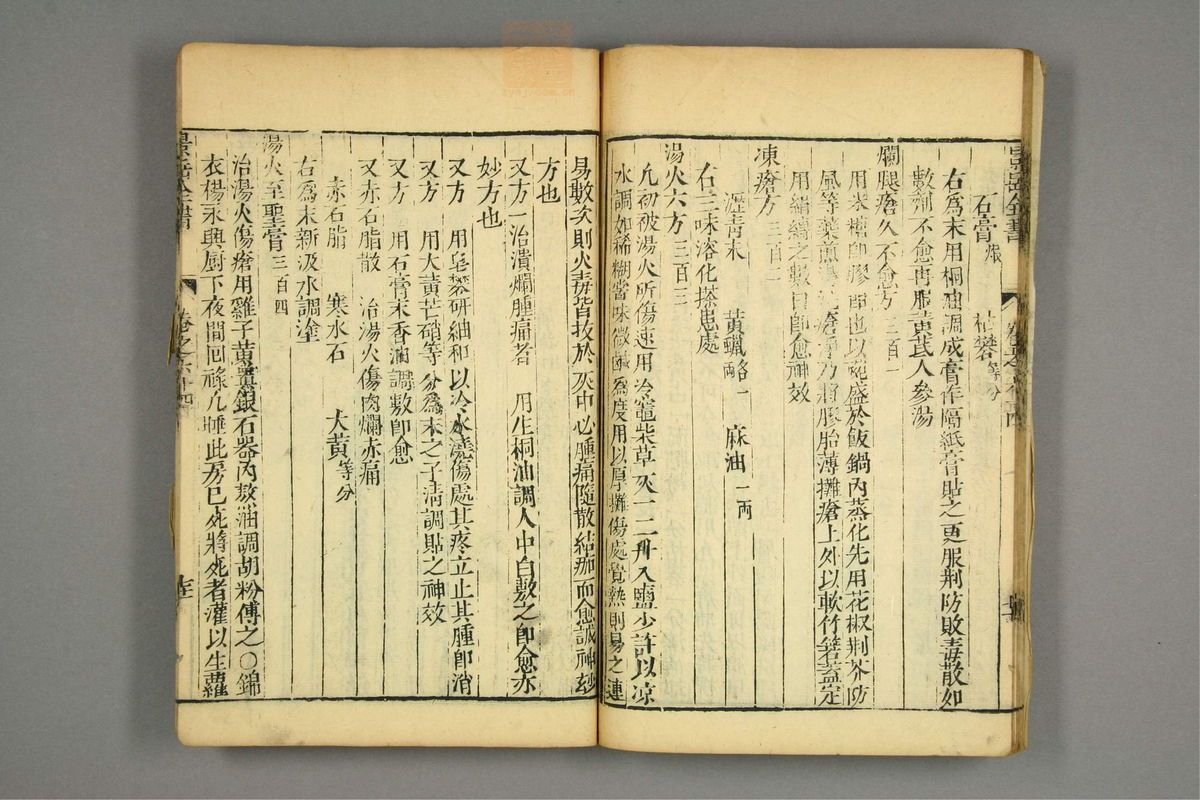 石膏煅 枯礬等分
右爲末用桐油調成膏作隔紙膏貼之更服荆防敗毒散如
數劑不愈再服黃芪人參湯
爛腿瘡久不愈方三百一
用米糖卽膠飴也以碗盛於飯鍋內蒸化先用花椒荆芥防
風等藥煎湯瘡淨乃將膠胎薄攤瘡上外以軟竹箬蓋定
用絹縛之數日卽愈神效
凍瘡方三百二
瀝青末 黃蠟各一兩 麻油一兩
右三味溶化搽患處
湯火六方三百三
凡初被湯火所傷速用冷竈柴草灰一二升入鹽少許以凉
水調如稀糊嘗味微鹹爲度用以厚攤傷處覺熱則易之連
易數次則火毒皆拔於灰中必腫痛隨散結痂而愈誠神玅
方也
又方一治潰爛腫痛者 用生桐油調人中白敷之卽愈亦
妙方也
又方 用皂礬研細和以冷水澆傷處其疼立止其腫卽消
又方 用大黃芒硝等分爲末之子淸調貼之神效
又方 用石膏末香油調敷卽愈
又赤石脂散 治湯火傷肉爛赤痛
赤石脂 寒水石 大黃等分
右爲末新汲水調塗
湯火至聖膏三百四
治湯火傷瘡用雞子黃置銀石器內熬油調胡粉傅之〇錦
衣楊永興厨下夜間回祿凡睡此房巳死將死者灌以生蘿
景岳全書
卷之六十四